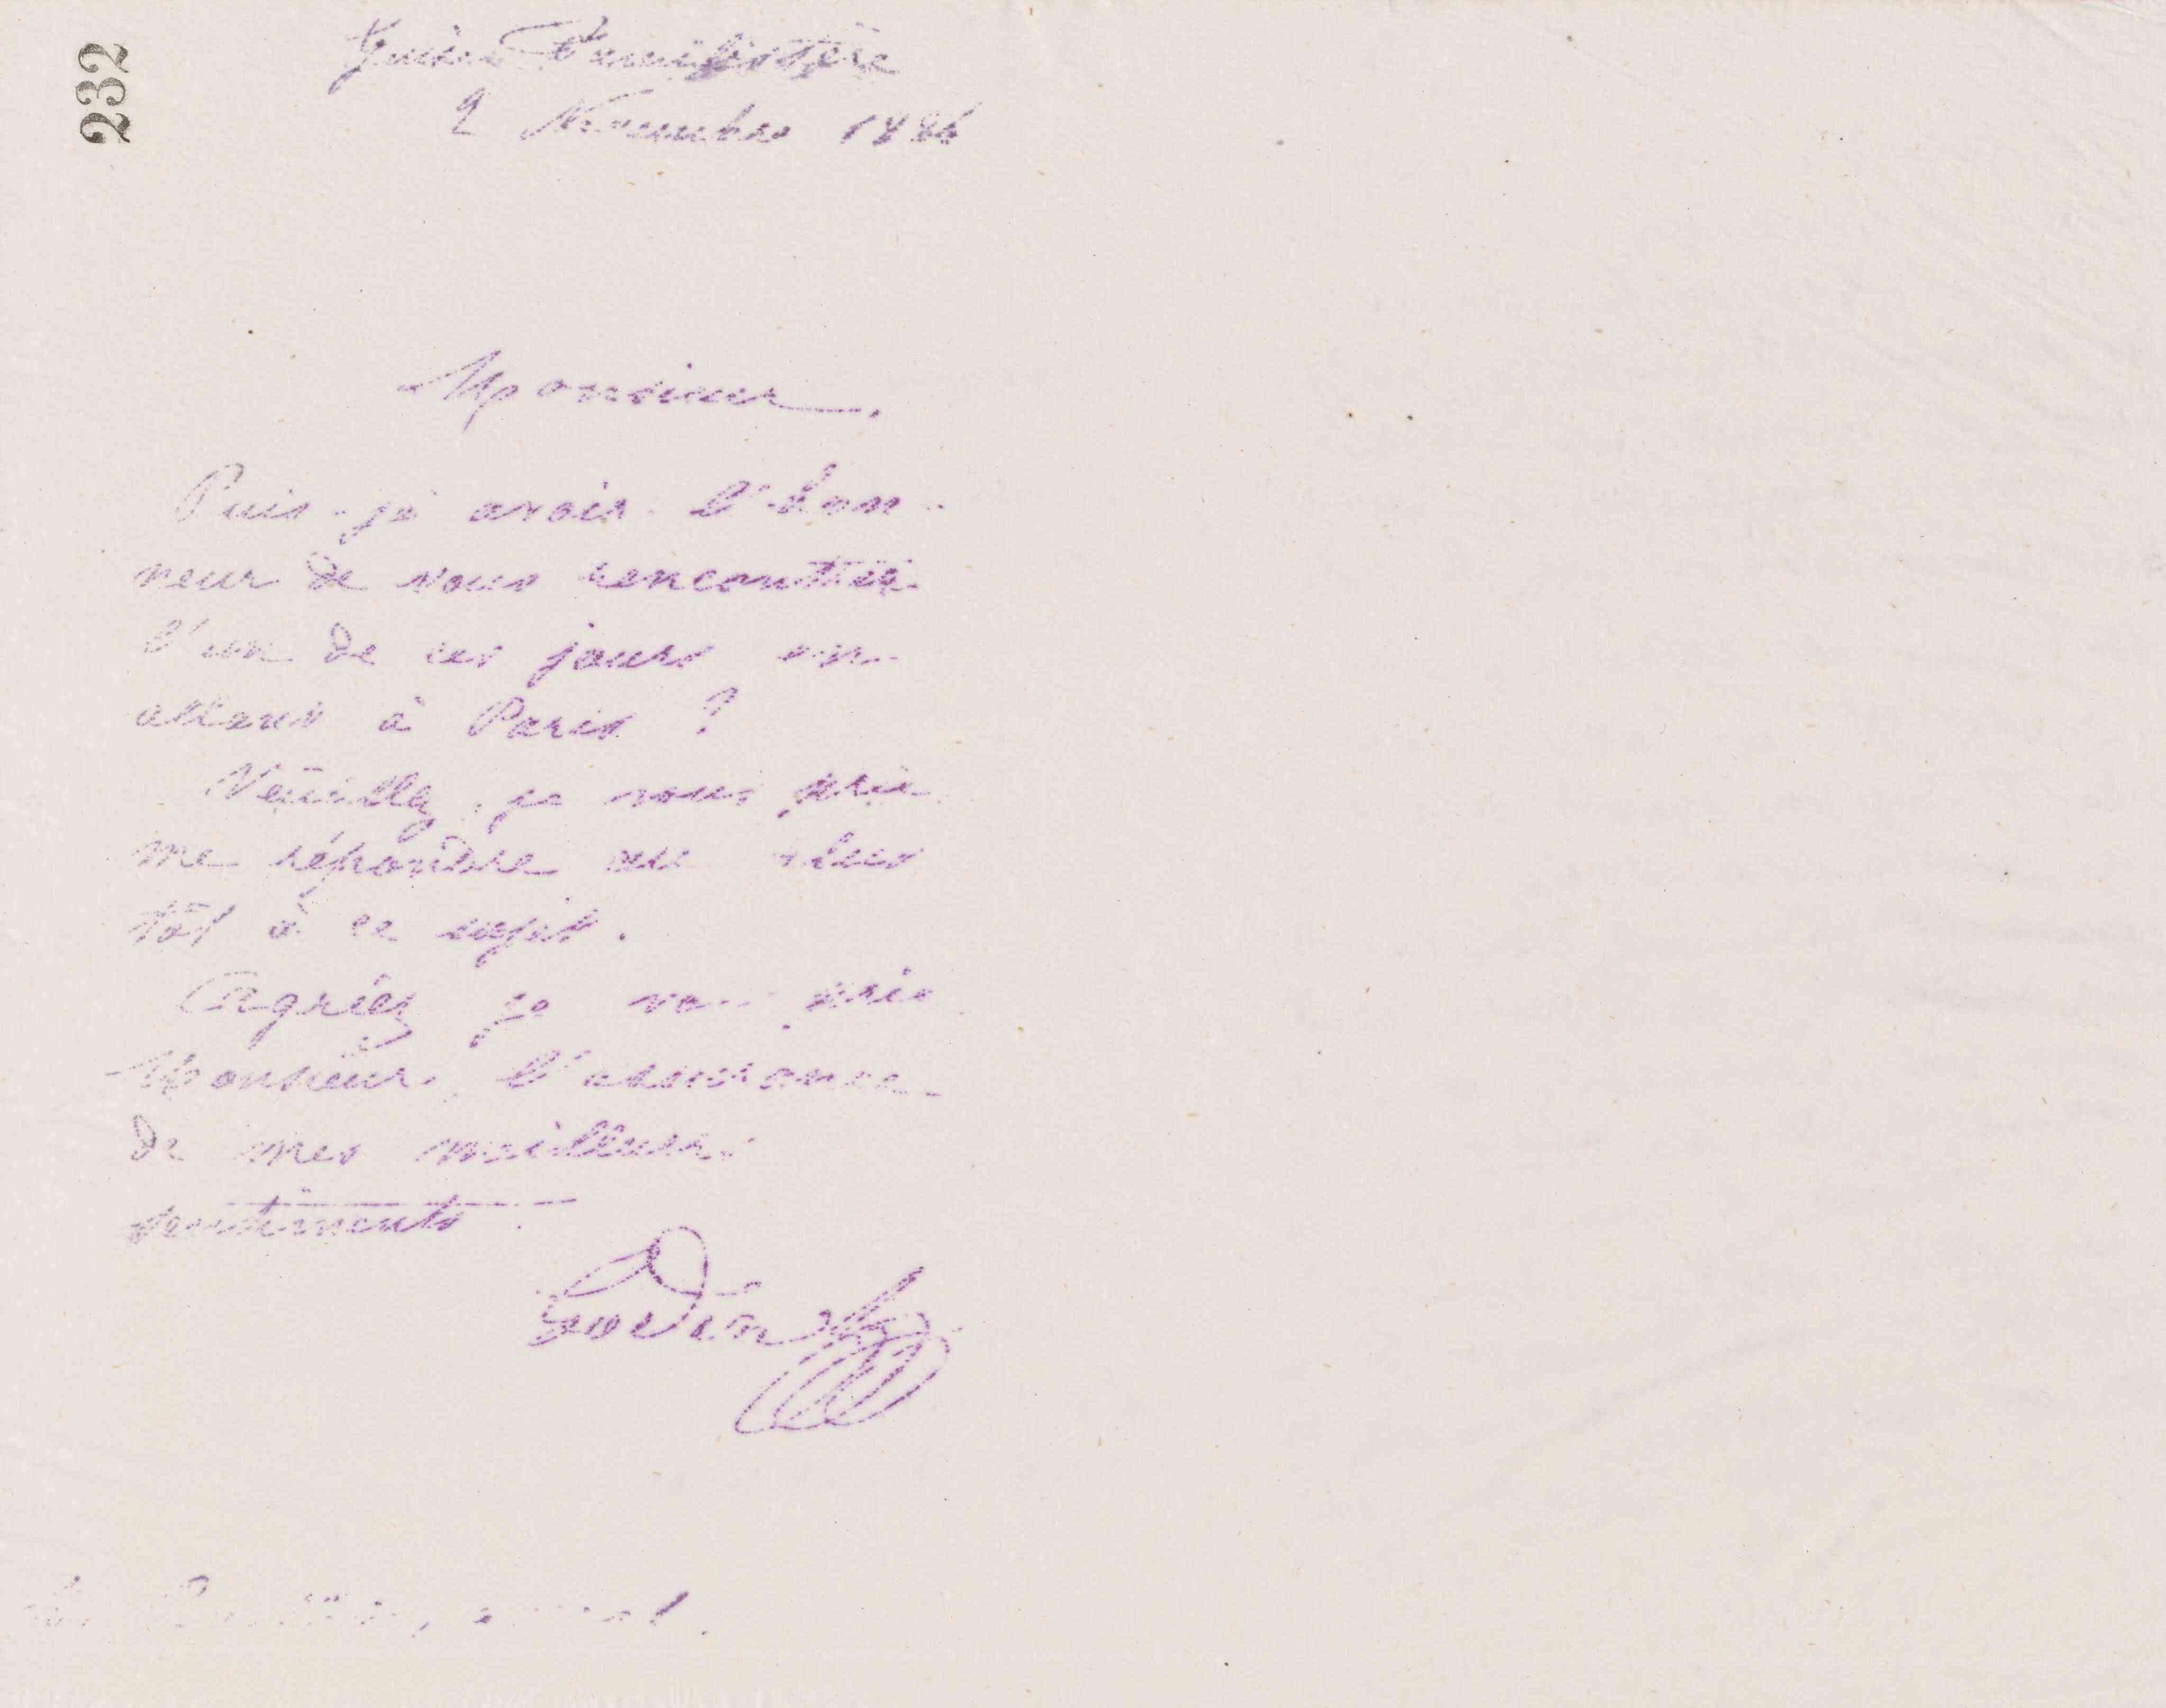 232
Guise Familistère
2 Novembre 1886
Monsieur,
Puis-je avoir l'hon-
neur de vous rencontrer
l'un de ces jours en
allant à Paris ?
Veuillez, je vous prie
me répondre au plus
tôt à ce sujet.
Agréez je vous prie
Monsieur, l'assurance
de mes meilleurs
sentiments
Godin